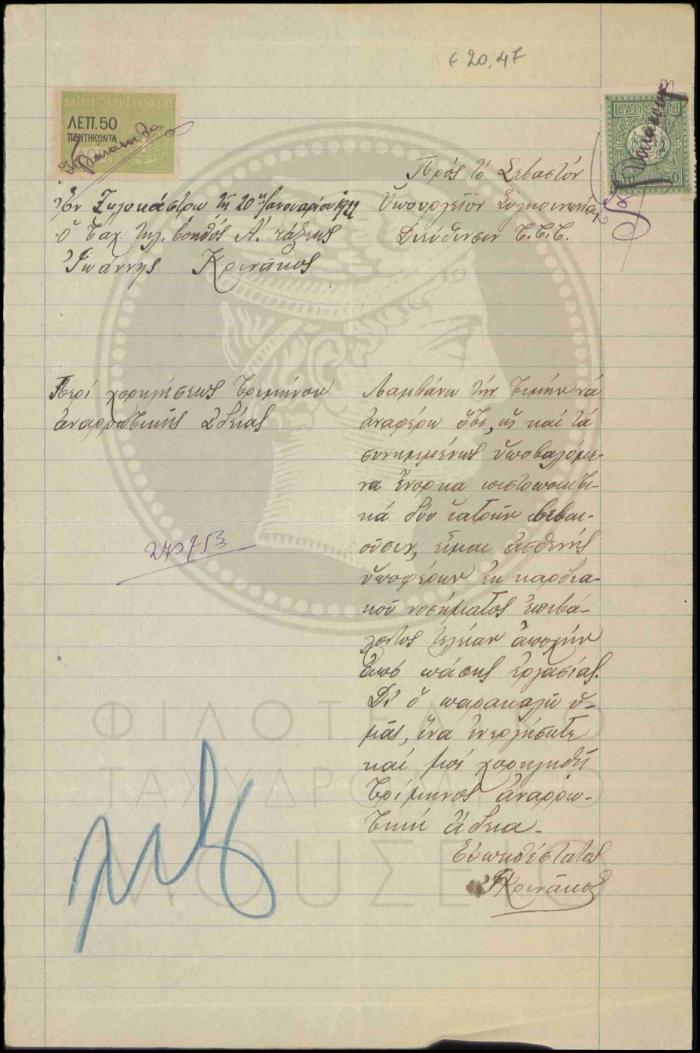 € 20,47
ΒΑΣΙΛΕΙΟΝ ΤΗΣ ΕΛΛΑΔΟΣ
ΛΕΠ. 50
ΠΕΝΤΗΚΟΝΤΑ
Πρὸς τὸ Σεβαστὸν
Ὑπουργεῖον Συγκοινωνίας
Διεύθυνσιν Τ.Τ.Τ.
Ἐν Ξυλοκάστρῳ τῇ 20ῇ Ἰανουαρίου 1922
Ὁ Ταχ. Τηλ. βοηθὸς Α΄ τάξεως
Ἰωάννης Κρινᾶκος
Περὶ χορηγήσεως τριμήνου
ἀναρρωτικῆς ἀδείας
Λαμβάνω τὴν τιμὴν νὰ
ἀναφέρω ὅτι, ὡς καὶ τὰ
συνημμένως ὑποβαλόμε-
να ἔνορκα πιστοποιητι-
κὰ δύο ἰατρῶν βεβαι-
οῦσιν, εἶμαι ἀσθενὴς
ὑποφέρων ἐκ καρδια-
κοῦ νοσήματος ἐπιβά-
λοντος τελείαν ἀποχὴν
ἀπὸ πάσης ἐργασίας.
Δι' ὃ παρακαλῶ ὑ-
μᾶς, ἵνα ἐνεργήσητε
καὶ μοὶ χορηγηθῇ
τρίμηνος ἀναρρω-
τικὴ ἄδεια.
Εὐπειθέστατος
Ἰ Κρινᾶκος
ΦΙΛΟΤΕΛΙΚΟ
ΤΑΧΥΔΡΟΜΙΚΟ
ΜΟΥΣΕΙΟ